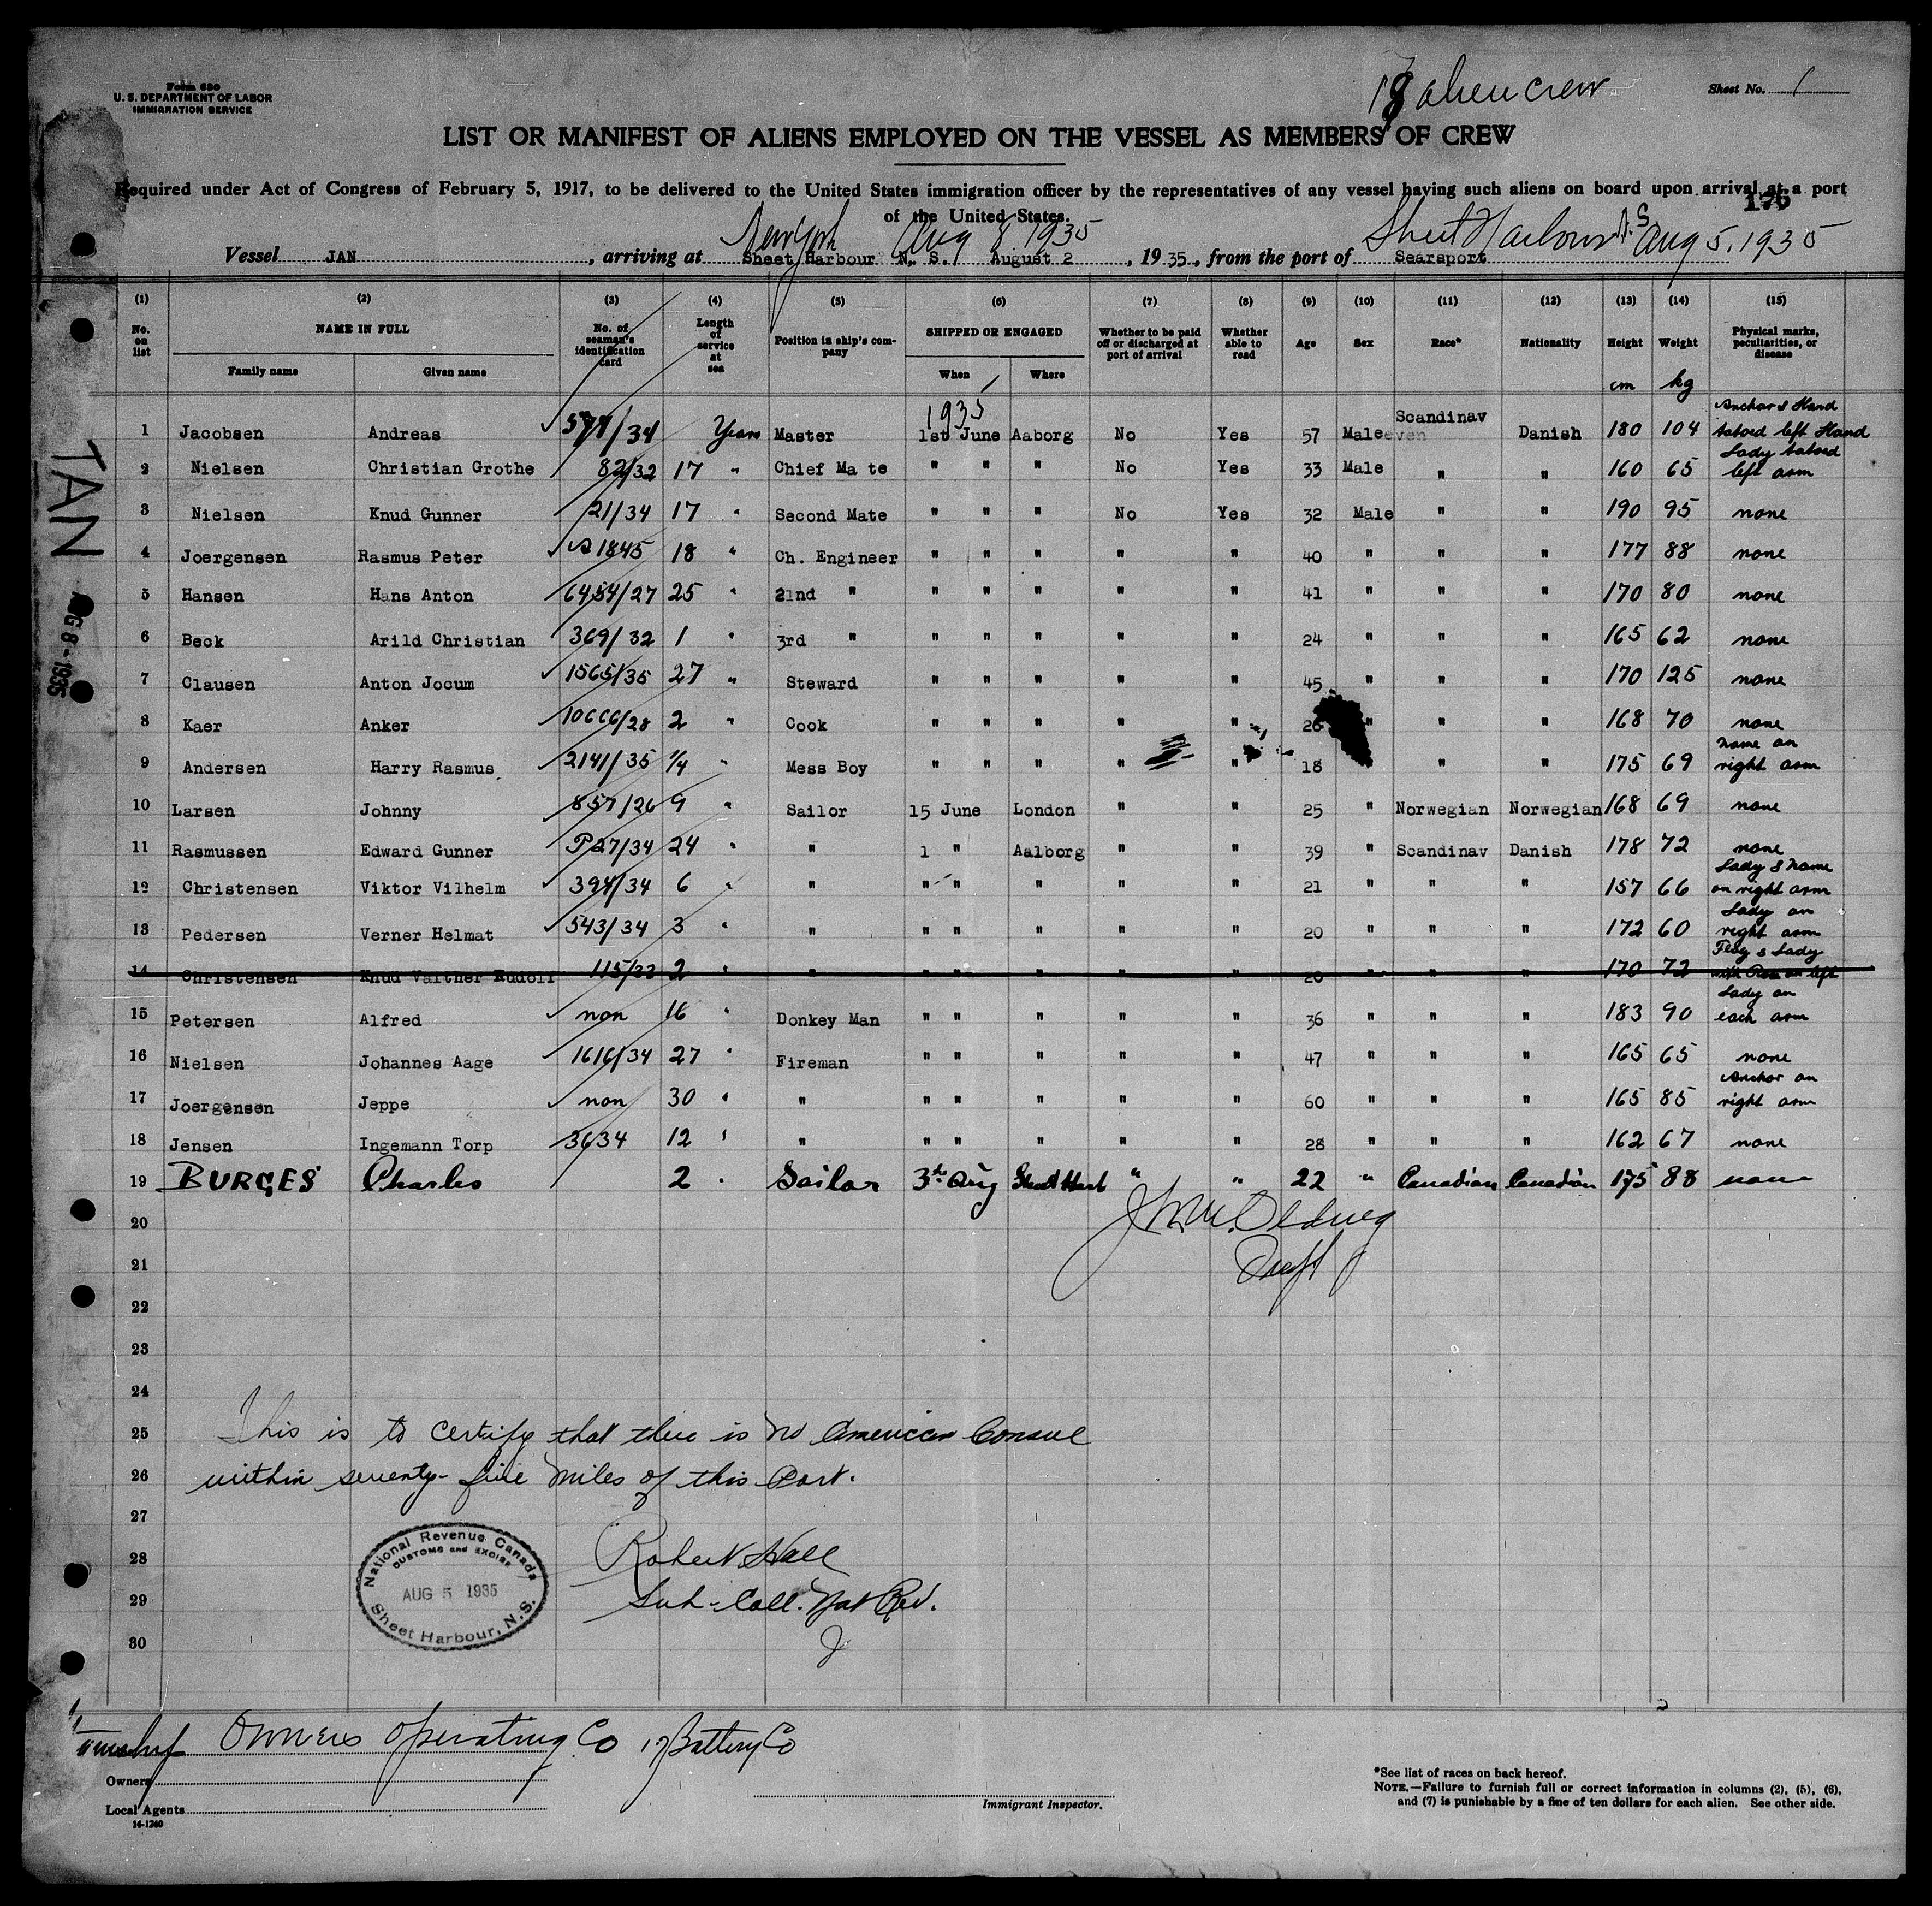 Form 680
U. S. DEPARTMENT OF LABOR
IMMIGRATION SERVICE
18 alien crew
Sheet No. 1
LIST OR MANIFEST OF ALIENS EMPLOYED ON THE VESSEL AS MEMBERS OF CREW
Required under Act of Congress of February 5, 1917, to be delivered to the United States immigration officer by the representatives of any vessel having such aliens on board upon arrival at a port
of the United States.
176
New York Aug 8 1935 Sheet Harbour N.S. Aug 5. 1935
Vessel JAN, arriving at Sheet Harbour N. S. August 2, 1935, from the port of Searsport
(1) (2) (3) (4) (5) (6) (7) (8) (9) (10) (11) (12) (13) (14) (15)
No. on list NAME IN FULL No. of seaman's identification card Length of service at sea Position in ship's company SHIPPED OR ENGAGED Whether to be paid off or discharged at port of arrival Whether able to read Age Sex Race* Nationality Height Weight Physical marks, peculiarities, or disease
Family name Given name When Where cm kg
1935
1 Jacobsen Andreas /34 Years Master 1st June Aaborg No Yes 57 Male Scandinav Danish 180 104 Anchor & Hand tatoed left Hand
2 Nielsen Christian Grothe 82/32 17 " Chief Ma te " " " No Yes 33 Male " " 160 65 Lady tatoed left arm
3 Nielsen Knud Gunner 21/34 17 " Second Mate " " " No Yes 32 Male " " 190 95 none
4 Joergensen Rasmus Peter 1845 18 " Ch. Engineer " " " " " 40 " " " 177 88 none
5 Hansen Hans Anton 6454/27 25 " 2nd " " " " " " 41 " " " 170 80 none
6 Beck Arild Christian 369/32 1 " 3rd " " " " " " 24 " " " 165 62 none
7 Clausen Anton Jocum 1565/35 27 " Steward " " " " " 45 " " " 170 125 none
8 Kaer Anker 10666/28 2 " Cook " " " " " 26 " " " 168 70 none
9 Andersen Harry Rasmus 2141/35 1/4 " Mess Boy " " " " " 18 " " 175 69 name on right arm
10 Larsen Johnny 857/26 9 " Sailor 15 June London " " 25 " Norwegian Norwegian 168 69 none
11 Rasmussen Edward Gunner P27/34 24 " " 1 " Aalborg " " 39 " Scandinav Danish 178 72 none
12 Christensen Viktor Vilhelm 394/34 6 " " " " " " " 21 " " " 157 66 Lady & name on right arm
13 Pedersen Verner Helmat 543/34 3 " " " " " " " 20 " " " 172 60 Lady on right arm
14 Christensen Knud Valther Rudolf 115/33 2 " " " " " " " 20 " " " 170 72 Flag & Lady on left
15 Petersen Alfred non 16 " Donkey Man " " " " " 36 " " " 183 90 Lady on each arm
16 Nielsen Johannes Aage 1616/34 27 " Fireman " " " " " 47 " " " 165 65 none
17 Joergensen Jeppe non 30 " " " " " " " 60 " " " 165 85 Anchor on right arm
18 Jensen Ingemann Torp 3634 12 " " " " " " " 28 " " " 162 67 none
19 BURGES Charles 2 " Sailor 3th Aug Sheet Harb " " 22 " Canadian Canadian 175 88 none
20
21
22
23
24
25 This is to certify that there is no American Consul
26 within seventy-five miles of this Port.
27
28 Robert Hall
29 Sub-Coll. Nat Rev.
30
National Revenue Canada
CUSTOMS and EXCISE
AUG 5 1935
Sheet Harbour, N.S.
JAN
AUG 8 - 1935
Owners Operating Co 17 Battery
Owners
Local Agents
14-1240
Immigrant Inspector.
*See list of races on back hereof.
NOTE.—Failure to furnish full or correct information in columns (2), (5), (6),
and (7) is punishable by a fine of ten dollars for each alien. See other side.